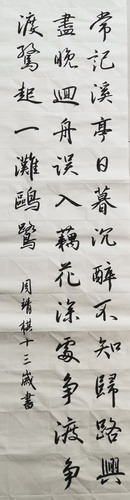 常記溪亭日暮沉醉不知歸路興
盡晚迴舟误入藕花深處争渡争
渡驚起一灘鷗鷺
周靖棋十三歲書